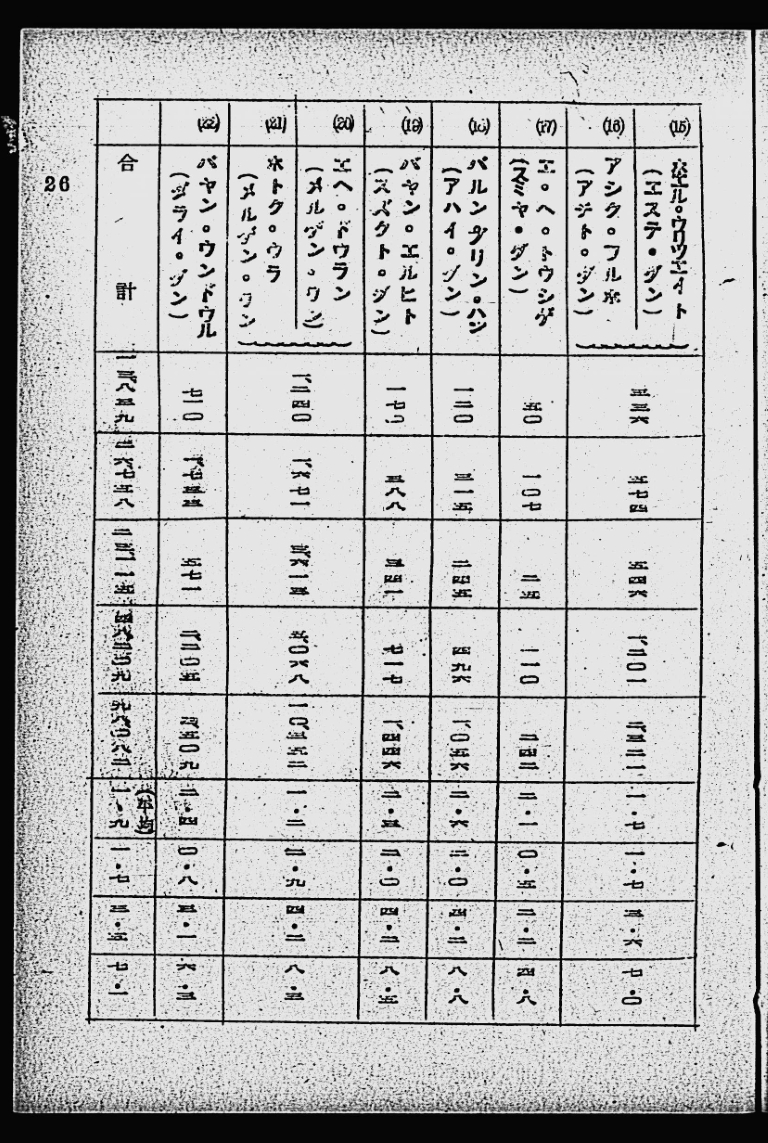 26
(15) ホエル。ウリツエイト
(エステ・ダン)
(16) アシク。フルホ
(アチト。ダン)
三三六
五七四
五四六
一、二〇一
二、三二一
一・七
一・七
三・六
七・〇
(17) エ。ヘ。トウシゲ
(スミヤ・ダン)
五〇
一〇七
二五
一一〇
二四二
二・一
〇・五
二・二
四・八
(18) バルンダリン。ハジ
(アハイ。ダン)
一二〇
三一五
二四五
四九六
一、〇五六
二・六
二・〇
四・二
八・八
(19) バヤン。エルヒト
(スズクト。ダン)
一七〇
三八八
三四一
七一七
一、四四六
二・三
二・〇
四・二
八・五
(20) エヘ。ドウラン
(メルゲン。ワン)
(21) ホトク。ウラ
(メルゲン。ワン
一、二四〇
一、六七一
三、六一五
五、〇六八
一・三
二・九
四・二
八・三
(22) バヤン。ウンドウル
(ダライ。ダン)
七二〇
一、七三三
五七一
二、二〇五
四、五〇九
二・四
〇・八
三・一
六・三
合計
二六、七五八
二三、一一五
四八、二〇九
九八、〇八二
(平均)
一・九
一・七
三・五
七・一